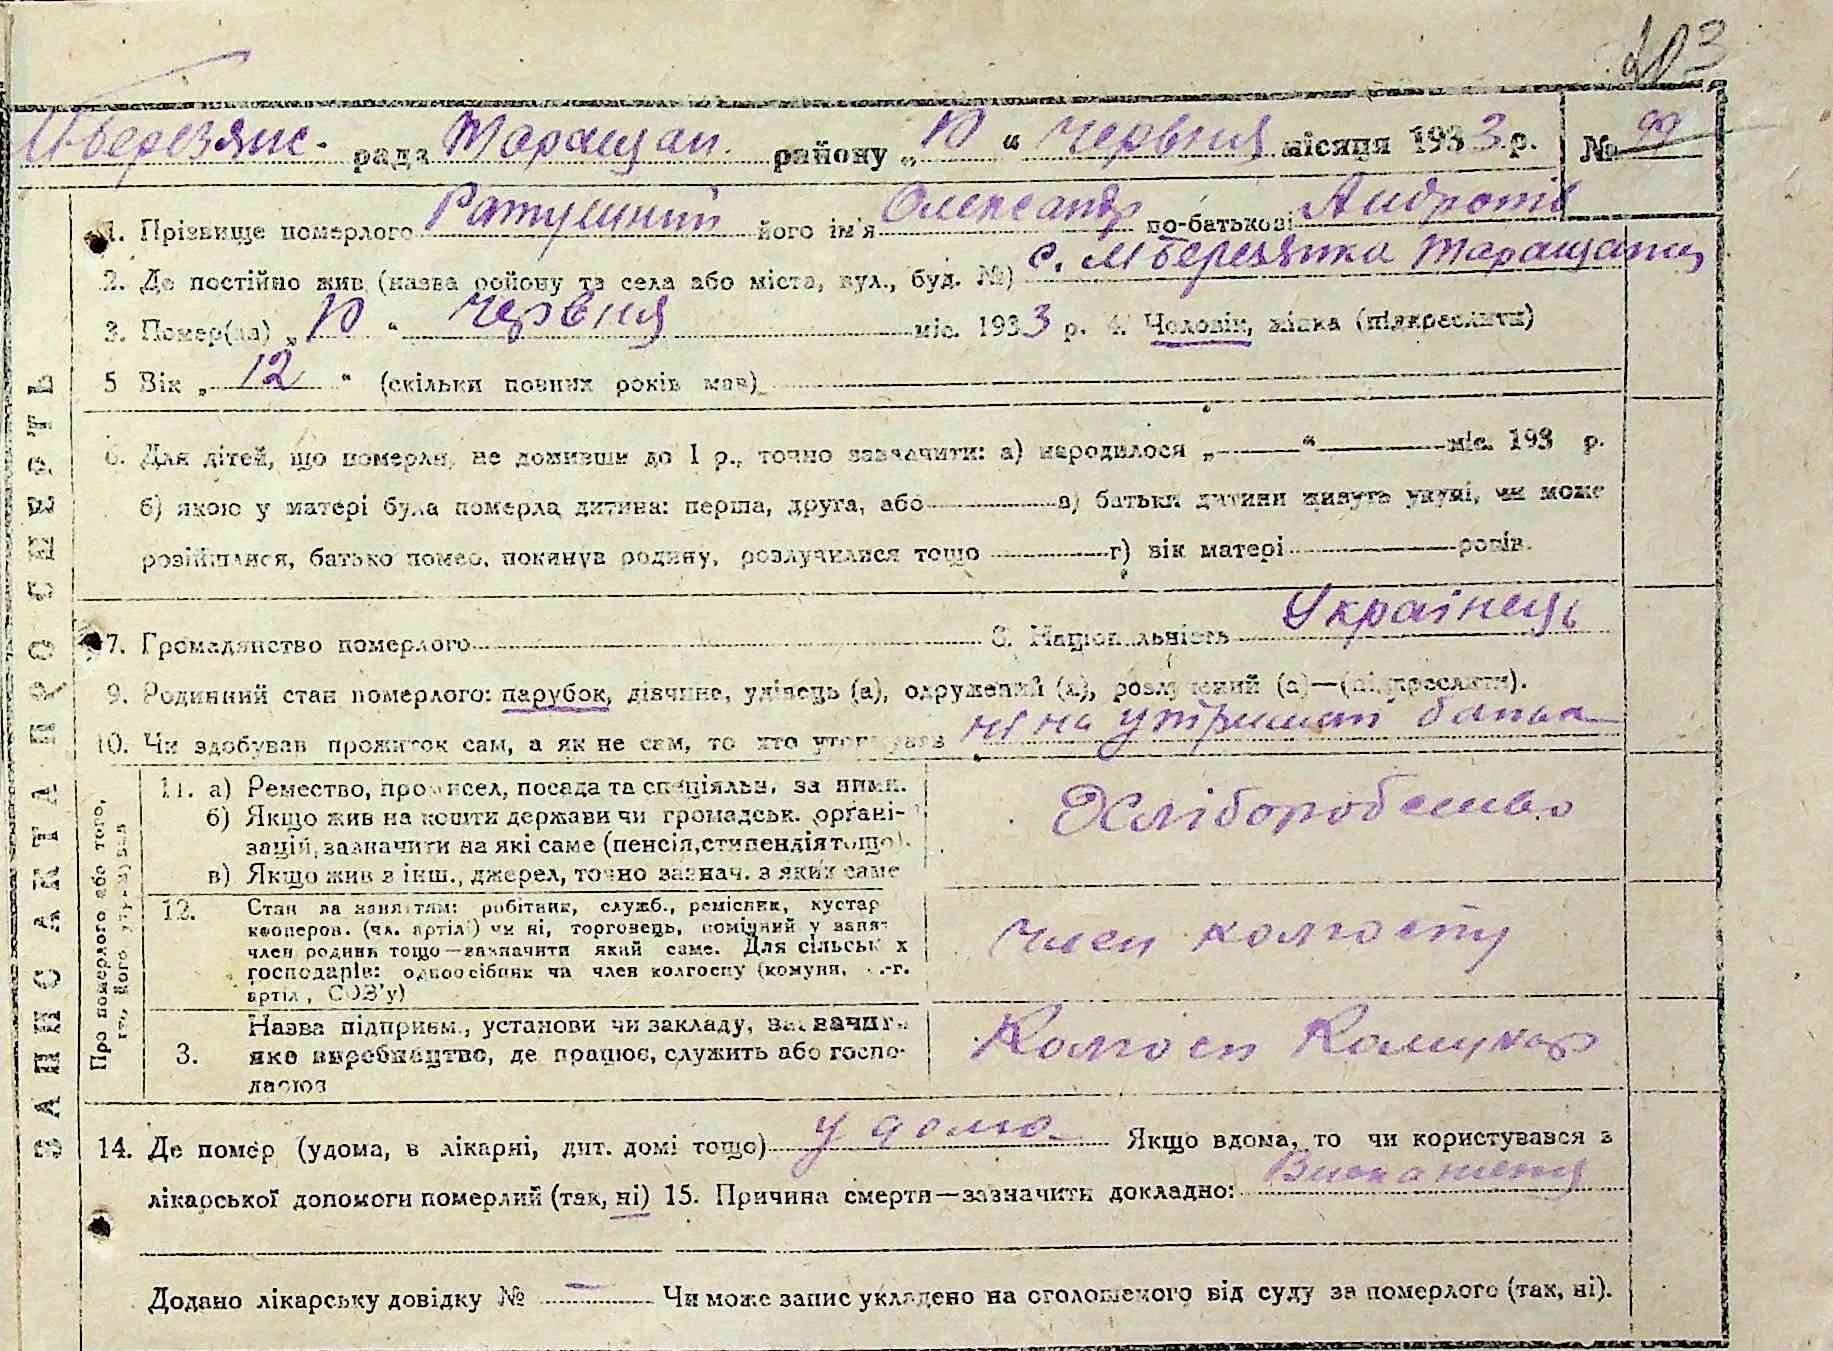 103
М Березянс. рада Таращан. району „10“ червня місяця 1933 р. № 99
ЗАПИС АКТА ПРО СМЕРТЬ
1. Прізвище померлого Ратушний його ім'я Олександр по-батькові
2. Де постійно жив (назва району та села або міста, вул., буд. №) с. М Березянка Таращанц
3. Помер(ла) „10“ червня міс. 1933 р. 4. Чоловік, жінка (підкреслити)
5 Вік „12“ (скільки повних років мав)
6. Для дітей, що померли, не доживши до 1 р., точно зазначити: а) народилося „ “ міс. 193 р.
б) якою у матері була померла дитина: перша, друга, або в) батьки дитини живуть укупі, чи може
розійшлися, батько помер, покинув родину, розлучилися тощо г) вік матері років.
7. Громадянство померлого 8. Національність Українець
9. Родинний стан померлого: парубок, дівчина, удівець (а), одружений (а), розлучений (а)—(підкреслити).
10. Чи здобував прожиток сам, а як не сам, то хто утримував ні на утриман батька
Про померлого або того,
хто його утримував
11. а) Ремество, промисел, посада та спеціяльн. за ними.
б) Якщо жив на кошти держави чи громадськ. органі-
зацій, зазначити на які саме (пенсія, стипендія тощо).
в) Якщо жив з інш., джерел, точно зазнач. з яких саме
Хліборобство
12. Стан за заняттям: робітник, служб., ремісник, кустар
кооперов. (чл. артілі) чи ні, торговець, помічний у занят.
член родини тощо—зазначити який саме. Для сільськ х
господарів: одноосібник чи член колгоспу (комуни, с.-г.
артіл, СОЗ'у)
член колгоспу
3. Назва підприєм., установи чи закладу, зазначити
яке виробництво, де працює, служить або госпо-
дарює
Колгосп
14. Де помер (удома, в лікарні, дит. домі тощо) у дома Якщо вдома, то чи користувався з
лікарської допомоги померлий (так, ні) 15. Причина смерти—зазначити докладно: Виснаження
Додано лікарську довідку № — Чи може запис укладено на оголошеного від суду за померлого (так, ні).